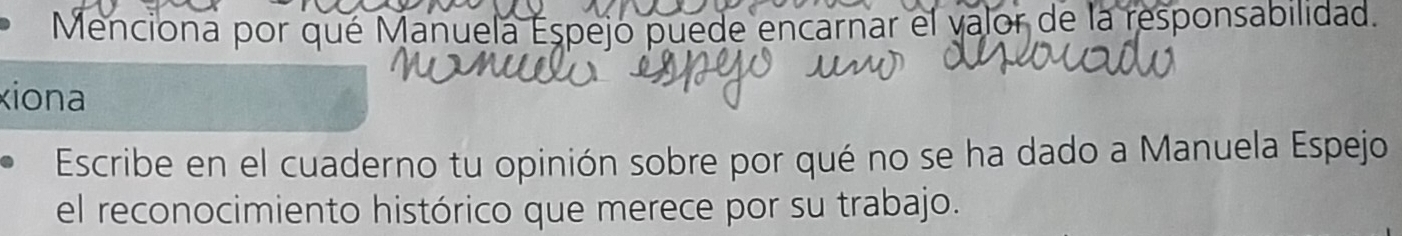 • Menciona por qué Manuela Espejo puede encarnar el valor de la responsabilidad.
manuela espejo uno
xiona
• Escribe en el cuaderno tu opinión sobre por qué no se ha dado a Manuela Espejo
el reconocimiento histórico que merece por su trabajo.